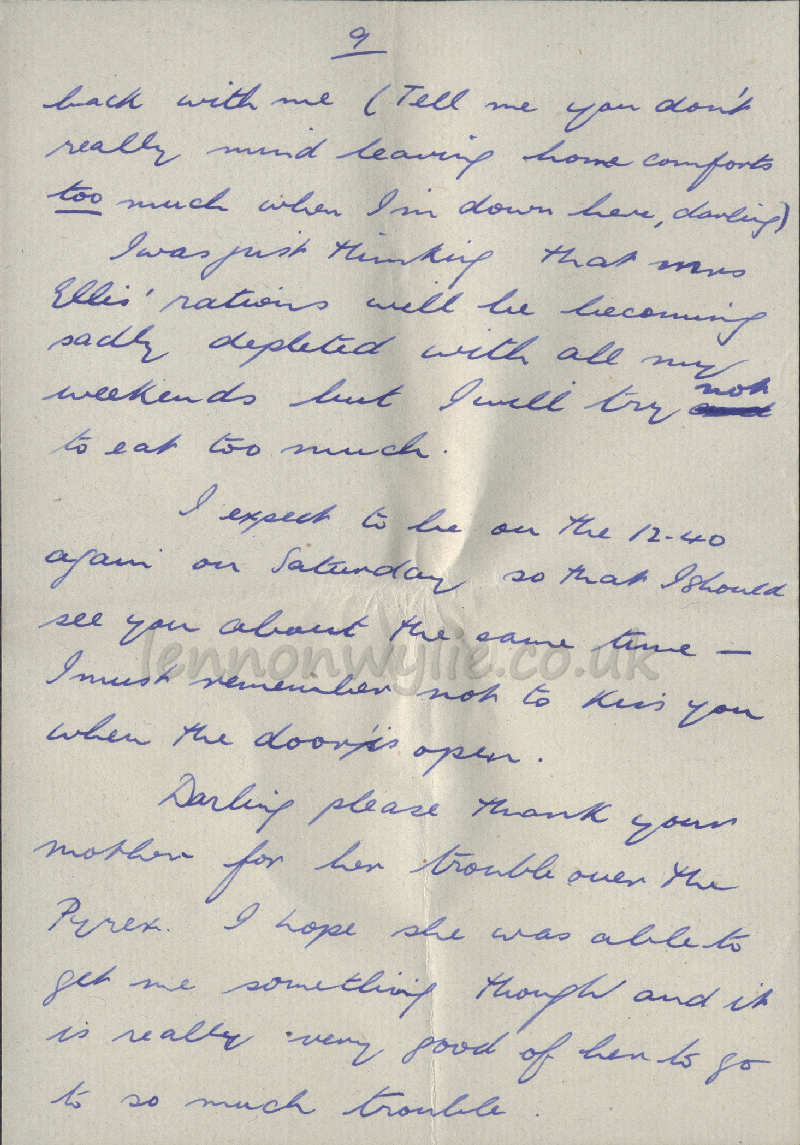 9
back with me (Tell me you don't
really mind leaving home comforts
too much when I'm down here, darling)
I was just thinking that Mrs
Ellis' rations will be becoming
sadly depleted with all my
weekends but I will try not
to eat too much.
I expect to be on the 12-40
again on Saturday so that I should
see you about the same time —
lennonwylie.co.uk
I must remember not to kiss you
when the door is open.
Darling please thank your
mother for her trouble over the
Pyrex. I hope she was able to
get me something though and it
is really very good of her to go
to so much trouble.